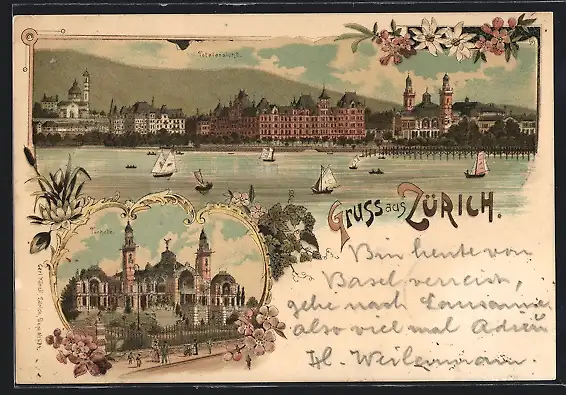 Totalansicht.
Gruss aus Zürich.
Tonhalle.
Bin heute von
Basel verreist,
gehe nach Lausanne
also viel mal Adieu
H. Weilenmann.